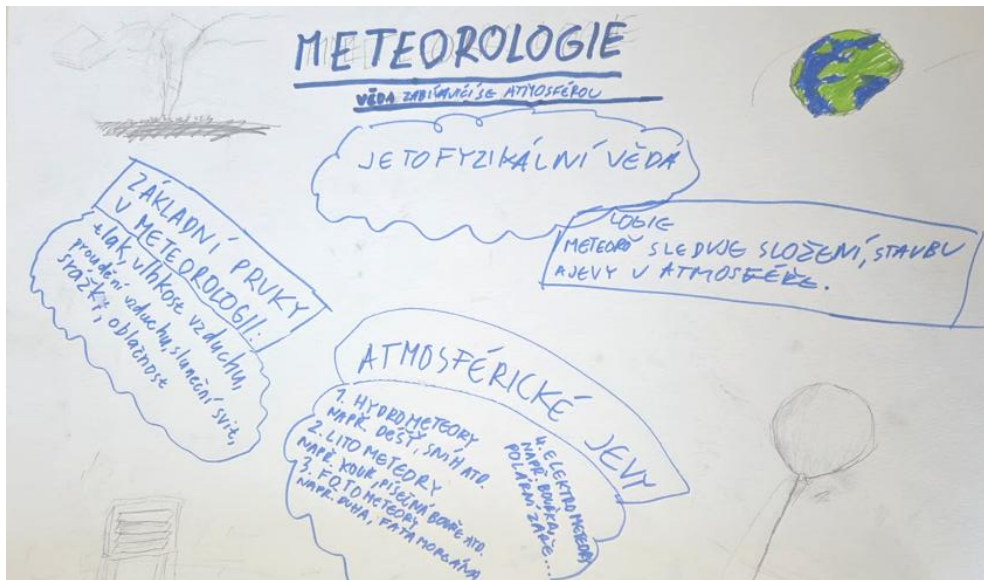 METEOROLOGIE
VĚDA ZABÍVAJÍCÍ SE ATMOSFÉROU
JE TO FYZIKÁLNÍ VĚDA
LOGIE
METEORO SLEDUJE SLOŽENÍ, STAVBU
A JEVY V ATMOSFÉŘE.
ZÁKLADNÍ PRVKY
V METEOROLOGII:
tlak, vlhkost vzduchu,
proudění vzduchu, sluneční svit,
srážky, oblačnost
ATMOSFÉRICKÉ JEVY
1. HYDROMETEORY
NAPŘ. DEŠŤ, SNÍH ATD.
2. LITOMETEORY
NAPŘ. KOUŘ, PÍSEČNÁ BOUŘE ATD.
3. FOTOMETEORY
NAPŘ. DUHA, FATA MORGÁNA
4. ELEKTROMETEORY
NAPŘ. BOUŘKA,
POLÁRNÍ ZÁŘE...